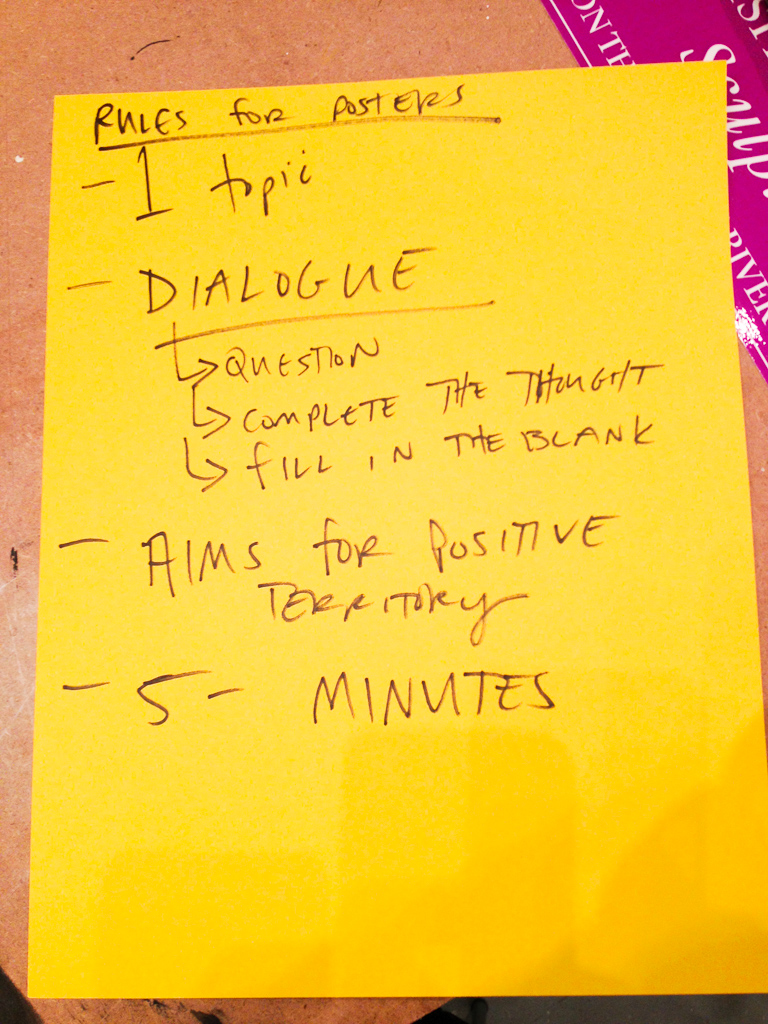 RULES for POSTERS
- 1 topic
- DIALOGUE
↳ QUESTION
↳ COMPLETE THE THOUGHT
↳ fILL IN THE BLANK
- AIMS for POSITIVE
TERRITORY
- 5 - MINUTES
ON TH
Sculp
RIVER